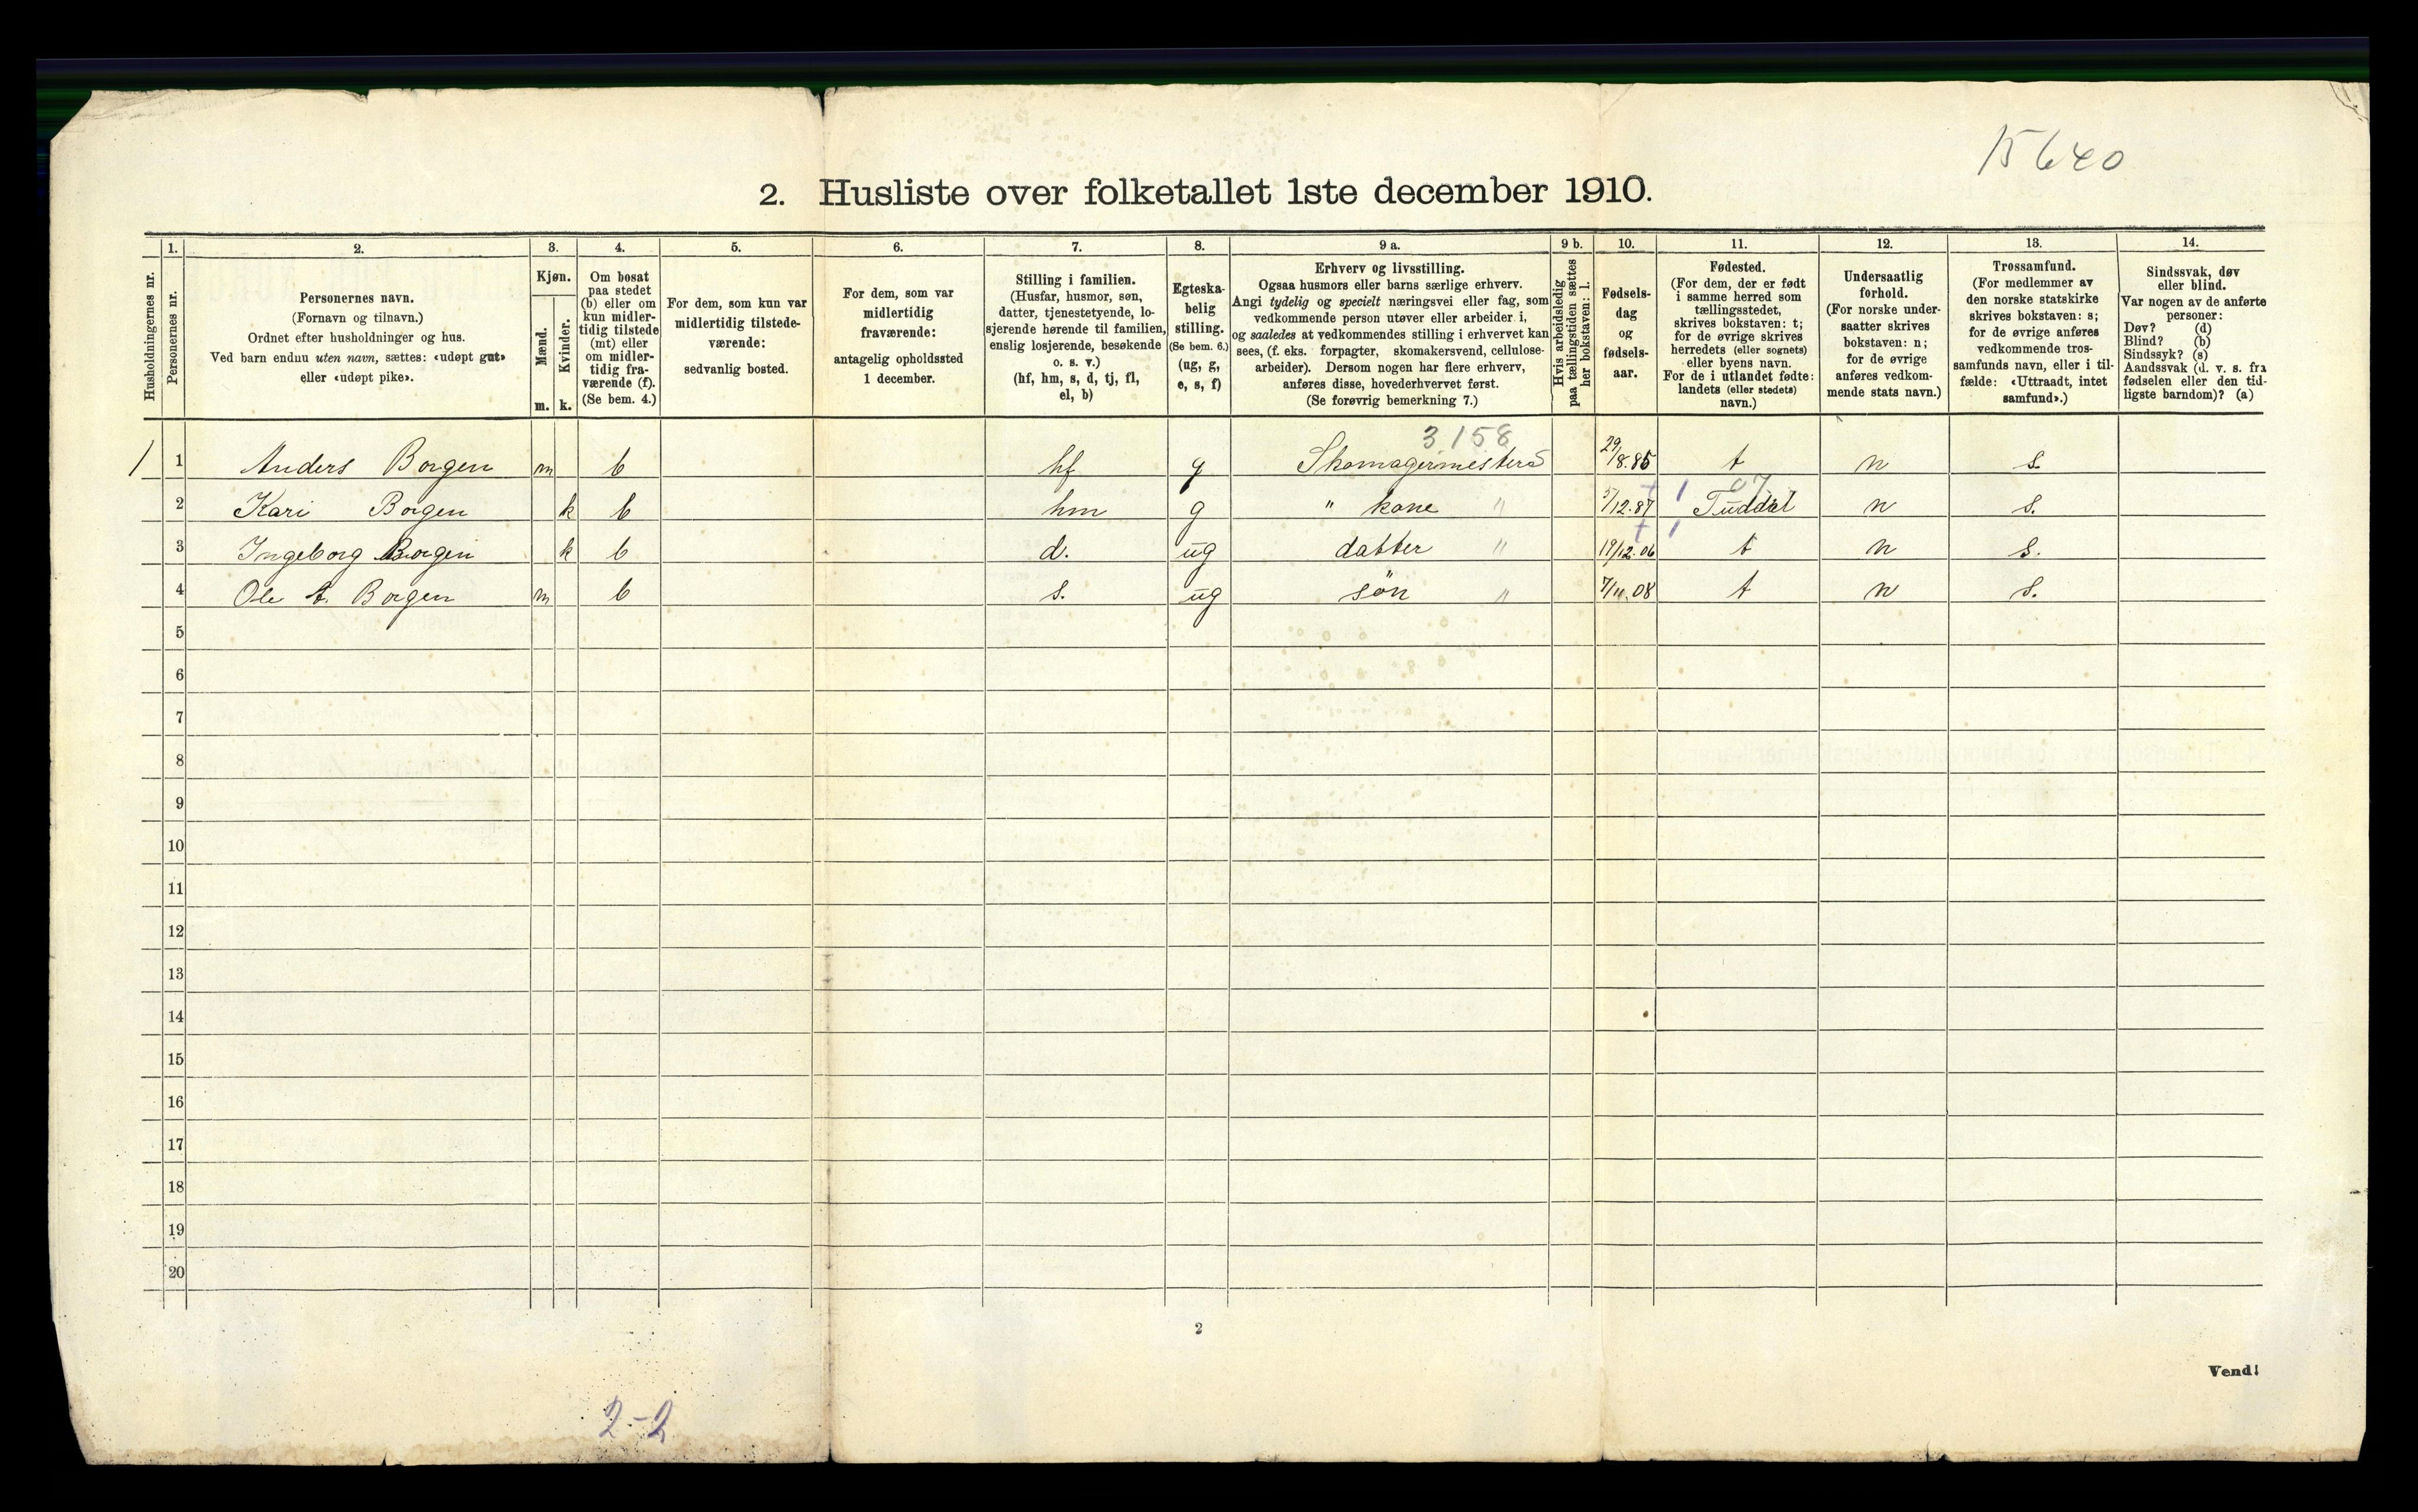 15640
2. Husliste over folketallet 1ste december 1910.
Husholdningernes nr.
1.
Personernes nr.
2.
Personernes navn.
(Fornavn og tilnavn.)
Ordnet efter husholdninger og hus.
Ved barn endnu uten navn, sættes: «udøpt gut»
eller «udøpt pike».
3.
Kjøn.
Mænd.
m.
Kvinder.
k.
4.
Om bosat
paa stedet
(b) eller om
kun midler-
tidig tilstede
(mt) eller
om midler-
tidig fra-
værende (f).
(Se bem. 4.)
5.
For dem, som kun var
midlertidig tilstede-
værende:
sedvanlig bosted.
6.
For dem, som var
midlertidig
fraværende:
antagelig opholdssted
1 december.
7.
Stilling i familien.
(Husfar, husmor, søn,
datter, tjenestetyende, lo-
sjerende hørende til familien,
enslig losjerende, besøkende
o. s. v.)
(hf, hm, s, d, tj, fl,
el, b)
8.
Egteska-
belig
stilling.
(Se bem. 6.)
(ug, g,
e, s, f)
9 a.
Erhverv og livsstilling.
Ogsaa husmors eller barns særlige erhverv.
Angi tydelig og specielt næringsvei eller fag, som
vedkommende person utøver eller arbeider i,
og saaledes at vedkommendes stilling i erhvervet kan
sees, (f. eks. forpagter, skomakersvend, cellulose-
arbeider). Dersom nogen har flere erhverv,
anføres disse, hovederhvervet først.
(Se forøvrig bemerkning 7.)
9 b.
Hvis arbeidsledig
paa tællingstiden sættes
her bokstaven: l.
10.
Fødsels-
dag
og
fødsels-
aar.
11.
Fødested.
(For dem, der er født
i samme herred som
tællingsstedet,
skrives bokstaven: t;
for de øvrige skrives
herredets (eller sognets)
eller byens navn.
For de i utlandet fødte:
landets (eller stedets)
navn.)
12.
Undersaatlig
forhold.
(For norske under-
saatter skrives
bokstaven: n;
for de øvrige
anføres vedkom-
mende stats navn.)
13.
Trossamfund.
(For medlemmer av
den norske statskirke
skrives bokstaven: s;
for de øvrige anføres
vedkommende tros-
samfunds navn, eller i til-
fælde: «Uttraadt, intet
samfund».)
14.
Sindssvak, døv
eller blind.
Var nogen av de anførte
personer:
Døv? (d)
Blind? (b)
Sindssyk? (s)
Aandssvak (d. v. s. fra
fødselen eller den tid-
ligste barndom)? (a)
3158
1 1 Anders Borgen m b hf g Skomagermester 29/8.85 t n s.
07
2 Kari Borgen k b hm g " kane " 5/12.87 Tuddal n s.
3 Ingeborg Borgen k b d. ug datter " 19/12.06 t n s.
4 Ole A. Borgen m b s. ug søn " 7/11.08 t n s.
5
6
7
8
9
10
11
12
13
14
15
16
17
18
19
20
2
Vend!
2-2